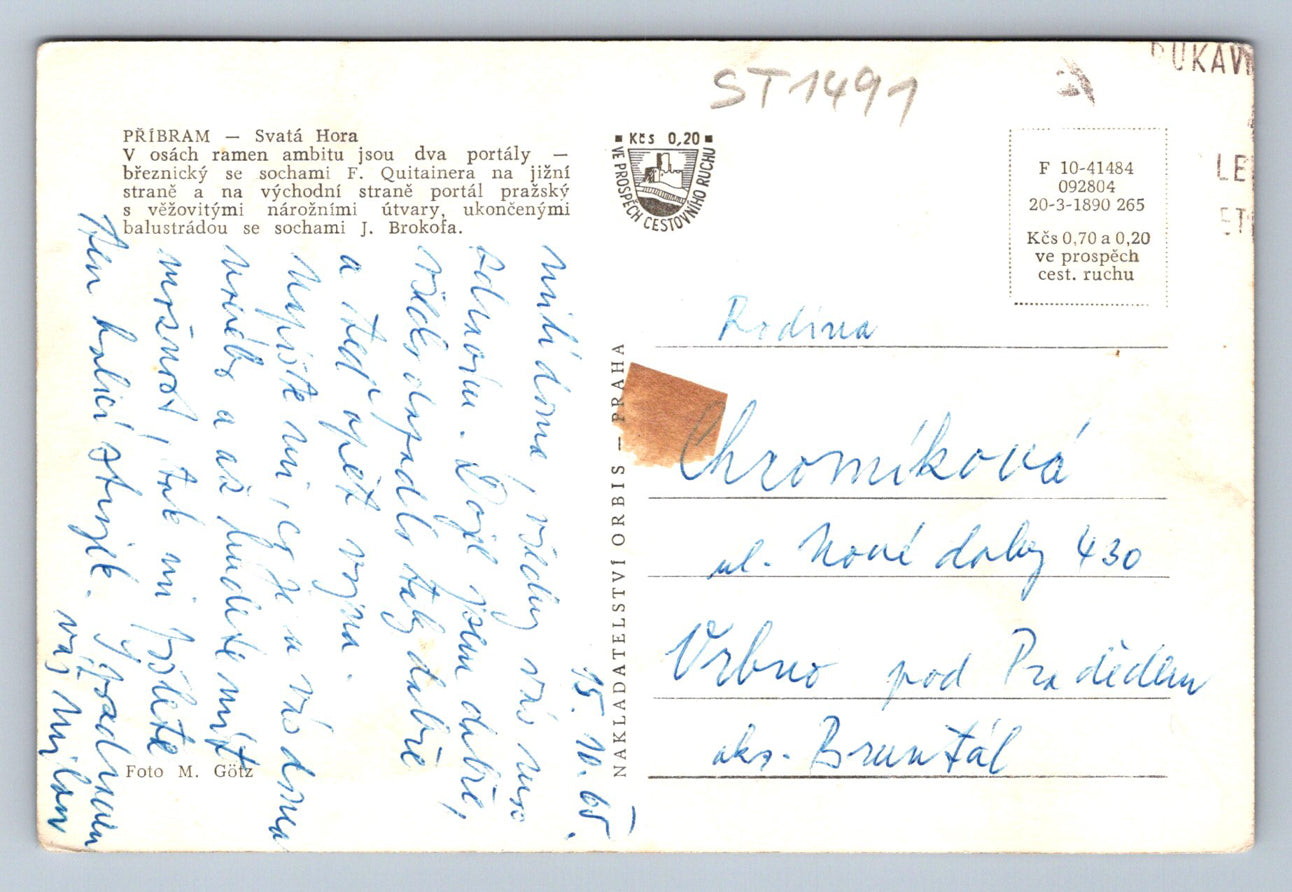 ST1491
PŘÍBRAM — Svatá Hora
V osách ramen ambitu jsou dva portály —
březnický se sochami F. Quitainera na jižní
straně a na východní straně portál pražský
s věžovitými nárožními útvary, ukončenými
balustrádou se sochami J. Brokofa.
Kčs 0,20
VE PROSPĚCH CESTOVNÍHO RUCHU
F 10-41484
092804
20-3-1890 265
Kčs 0,70 a 0,20
ve prospěch
cest. ruchu
15. 10. 65.
milí doma, všechny vás
zdravím. Dojel jsem dobře,
všecko dopadlo taky dobře
a teď opět vojna.
Napište mi, co je u vás doma
a až budete mít
možnost, tak mi pošlete
ten holicí strojek. Pozdravem
váš Milan
Foto M. Götz
NAKLADATELSTVÍ ORBIS — PRAHA
Rodina
Chromíková
ul. Nové doby 430
Vrbno pod Pradědem
okr. Bruntál